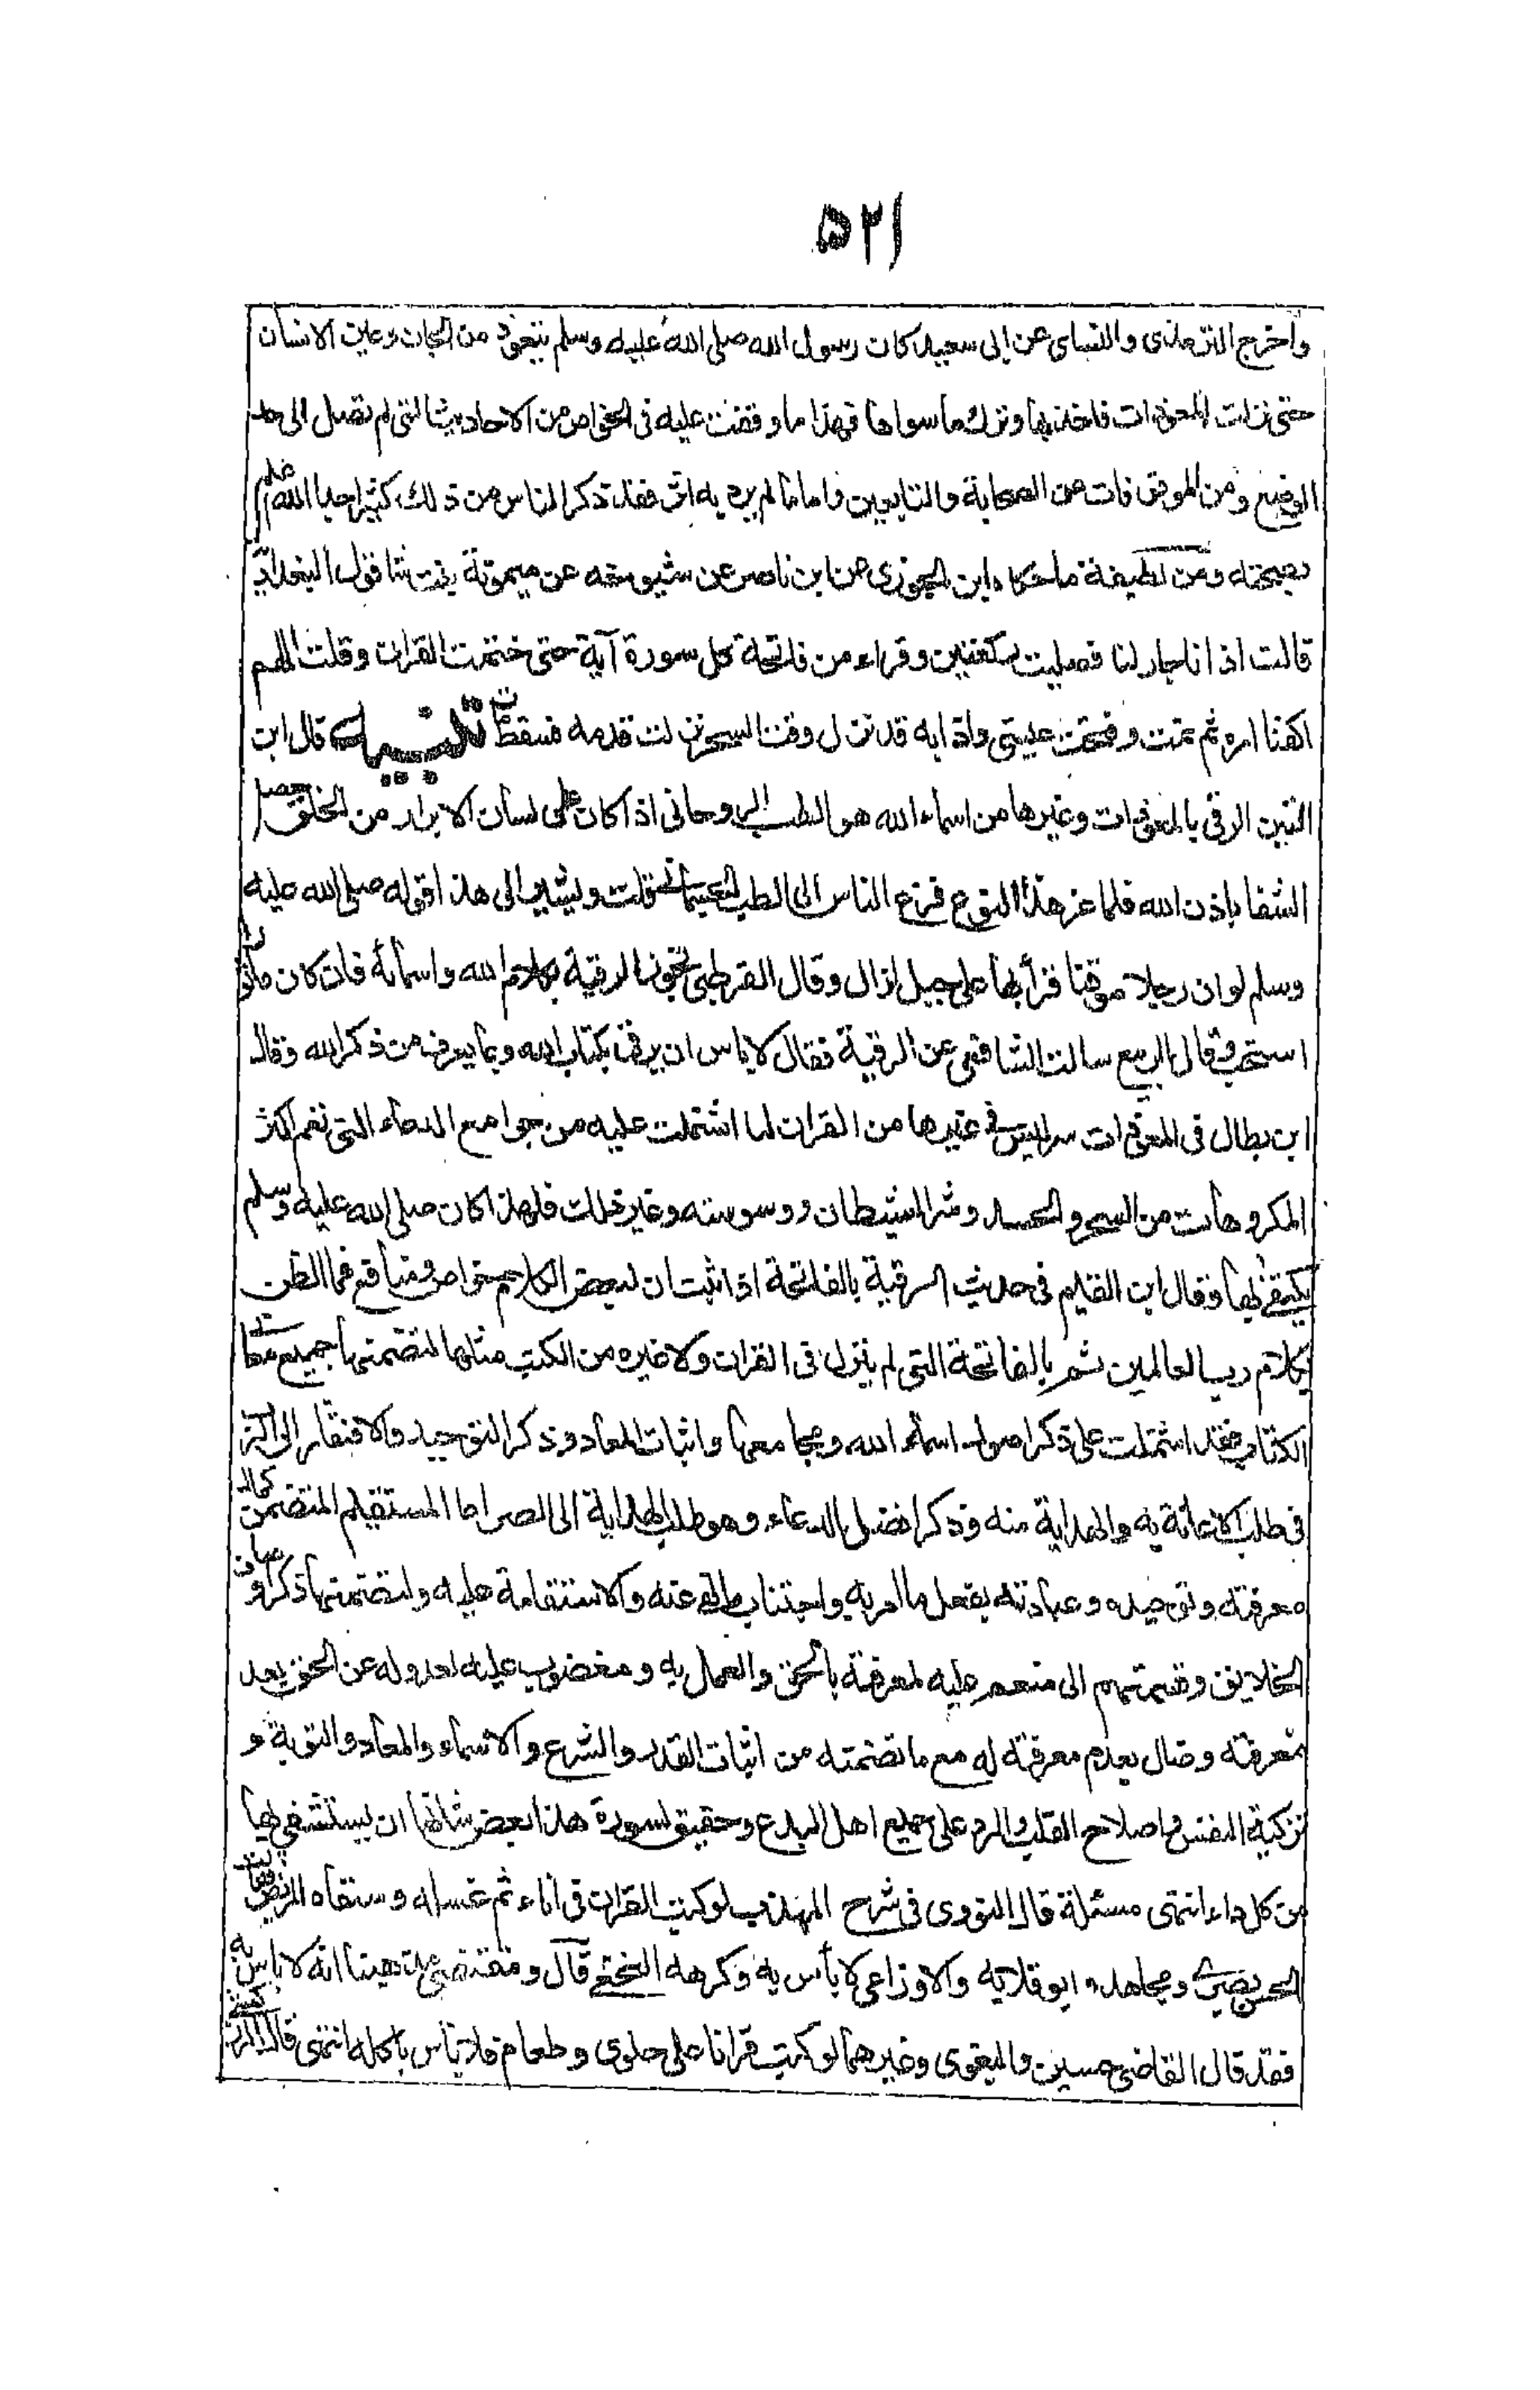 ۵۲۱
واخرج الترمذى والنسای عن ابى سعيد كان رسول الله صلى الله عليه وسلم يتعوذ من الجان وعين الانسان
حتى نزلت المعوذات فاخذ بها وترك ما سواها فهذا ما وقفت عليه فى الخواص من الاحاديث التى لم تصل الى حد
الوضع ومن الموقوفات عن الصحابة والتابعين واما ما لم يرد به اثر فقد ذكر الناس من ذلك كثيرا جدا الله اعلم
بصحته ومن لطيفة ما حكاه ابن الجوزى عن ابن ناصر عن شيوخه عن ميمونة بنت شاقول البغدادية
قالت اذانا جار لنا فصليت ركعتين وقراء من فاتحة كل سورة آية حتى ختمت القران وقلت اللهم
اكفنا امره ثم نمت وفتحت عينى واذا به قد نزل وقت السحر فزلت قدمه فسقط ومات تنبيه قال ابن
التين الرقى بالمعوذات وغيرها من اسماء الله هو الطب الروحانى اذا كان على لسان الابرار من الخلق حصل
الشفا باذن الله فلما عز هذا النوع فزع الناس الى الطب الجسمانى قلت ويشير الى هذا قوله صلى الله عليه
وسلم لو ان رجلا موقنا قرأ بها على جبل لزال وقال القرطبى تجوز الرقية بكلام الله واسمائه فان كان ماثورا
استحب وقال الربيع سالت الشافعى عن الرقية فقال لا باس ان يرقى بكتاب الله وبما يعرف من ذكر الله وقال
ابن بطال فى المعوذات سر ليس فى غيرها من القران لما اشتملت عليه من جوامع الدعاء التى تعم اكثر
المكروهات من السحر والحسد وشر الشيطان ووسوسته وغير ذلك فلهذا كان صلى الله عليه وسلم
يكتفى بها وقال ابن القيم فى حديث الرقية بالفاتحة اذا ثبت ان لبعض الكلام خواص ومنافع فما الظن
بكلام رب العالمين ثم بالفاتحة التى لم ينزل فى القران ولا غيره من الكتب مثلها لتضمنها جميع معانى
الكتاب فقد اشتملت على ذكر اصول اسماء الله ومجامعها واثبات المعاد وذكر التوحيد والافتقار الى الرب
فى طلب الاعانة به والهداية منه وذكر افضل الدعاء وهو طلب الهداية الى الصراط المستقيم المتضمن كمال
معرفته وتوحيده وعبادته بفعل ما امر به واجتناب ما نهى عنه والاستقامة عليه ولتضمنها ذكر اوصاف
الخلايق وقسمتهم الى منعم عليه لمعرفته بالحق والعمل به ومغضوب عليه لعدوله عن الحق بعد
معرفته وضال بعدم معرفته له مع ما تضمنته من اثبات القدر والشرع والاسماء والمعاد والتوبة و
تزكية النفس واصلاح القلب والرد على جميع اهل البدع وحقيق لسورة هذا بعض شانها ان يستشفى بها
من كل داء انتهى مسئلة قال النووى فى شرح المهذب لو كتب القران فى اناء ثم غسله وسقاه المريض فقال
الحسن بصرى ومجاهد وابو قلابه والاوزاعى لا بأس به وكرهه النخعى قال ومقتضى مذهبنا انه لا باس به
فقد قال القاضى حسين والبغوى وغيرهما لو كتب قرانا على حلوى وطعام فلا بأس باكله انتهى قال الزركشى